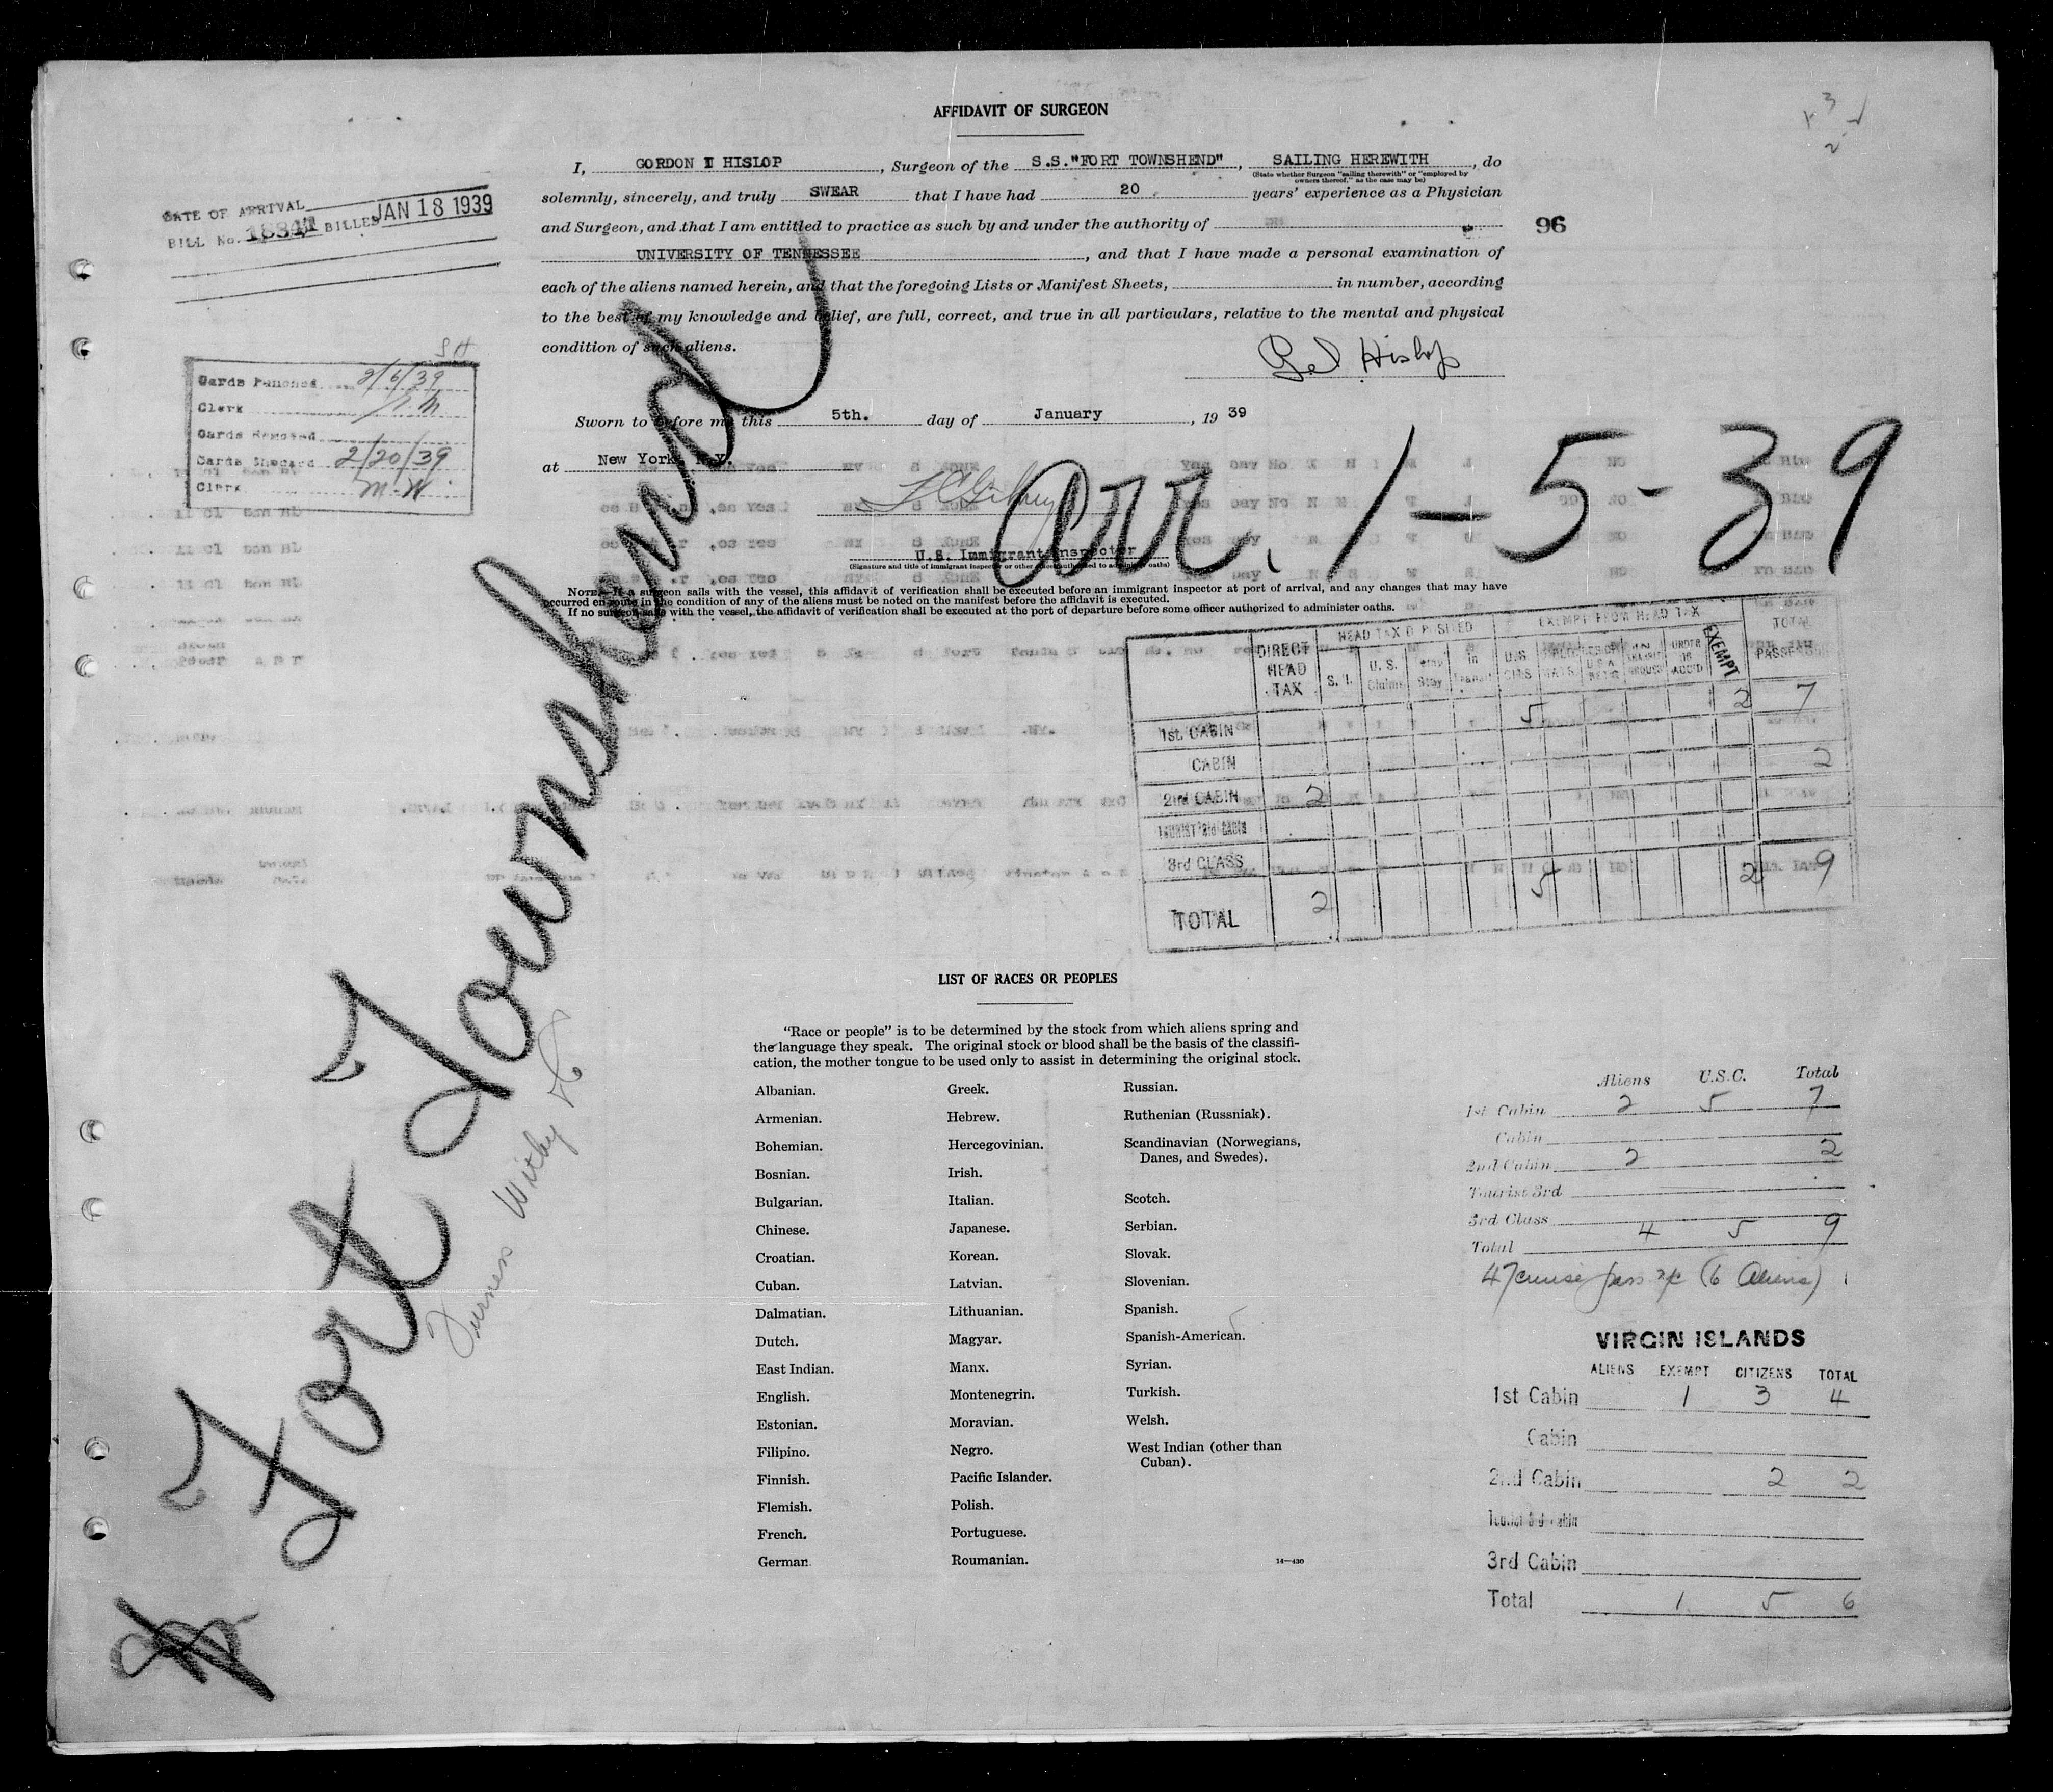 AFFIDAVIT OF SURGEON
I, GORDON E HISLOP, Surgeon of the S.S."FORT TOWNSHEND", SAILING HEREWITH, do
(State whether Surgeon "sailing therewith" or "employed by owners thereof," as the case may be)
solemnly, sincerely, and truly SWEAR that I have had 20 years' experience as a Physician
and Surgeon, and that I am entitled to practice as such by and under the authority of
UNIVERSITY OF TENNESSEE, and that I have made a personal examination of
each of the aliens named herein, and that the foregoing Lists or Manifest Sheets, in number, according
to the best of my knowledge and belief, are full, correct, and true in all particulars, relative to the mental and physical
condition of such aliens.
Hislop
Sworn to before me this 5th. day of January, 19 39
at New York, N.Y.
U.S. Immigrant Inspector
(Signature and title of immigrant inspector or other officer authorized to administer oaths)
NOTE.—If a surgeon sails with the vessel, this affidavit of verification shall be executed before an immigrant inspector at port of arrival, and any changes that may have
occurred en route in the condition of any of the aliens must be noted on the manifest before the affidavit is executed.
If no surgeon sails with the vessel, the affidavit of verification shall be executed at the port of departure before some officer authorized to administer oaths.
96
DATE OF ARRIVAL
BILL No. BILLED JAN 18 1939
SH
Cards Punched 2/6/39
Clerk
Cards Removed
Cards Checked 2/20/39
Clerk M.W.
Arr. 1-5-39
Fort Townshend
Furness Withy
DIRECT HEAD TAX
HEAD TAX DEPOSITED
S.I. U.S. Claims Temp Stay In Transit
EXEMPT FROM HEAD TAX
U.S. CITS
UNDER 16 ACCOD
EXEMPT
TOTAL PASSE
1st. CABIN 5 2 7
CABIN
2nd CABIN 2 2
TOURIST 3rd CABIN
3rd CLASS
TOTAL 2 5 2 9
LIST OF RACES OR PEOPLES
"Race or people" is to be determined by the stock from which aliens spring and
the language they speak. The original stock or blood shall be the basis of the classifi-
cation, the mother tongue to be used only to assist in determining the original stock.
Albanian.
Armenian.
Bohemian.
Bosnian.
Bulgarian.
Chinese.
Croatian.
Cuban.
Dalmatian.
Dutch.
East Indian.
English.
Estonian.
Filipino.
Finnish.
Flemish.
French.
German.
Greek.
Hebrew.
Hercegovinian.
Irish.
Italian.
Japanese.
Korean.
Latvian.
Lithuanian.
Magyar.
Manx.
Montenegrin.
Moravian.
Negro.
Pacific Islander.
Polish.
Portuguese.
Roumanian.
Russian.
Ruthenian (Russniak).
Scandinavian (Norwegians,
Danes, and Swedes).
Scotch.
Serbian.
Slovak.
Slovenian.
Spanish.
Spanish-American.
Syrian.
Turkish.
Welsh.
West Indian (other than
Cuban).
14—430
Aliens U.S.C. Total
1st Cabin 2 5 7
Cabin
2nd Cabin 2 2
Tourist 3rd
3rd Class
Total 4 5 9
47 cruise pass (6 Aliens)
VIRGIN ISLANDS
ALIENS EXEMPT CITIZENS TOTAL
1st Cabin 1 3 4
Cabin
2nd Cabin 2 2
Tourist 3rd Cabin
3rd Cabin
Total 1 5 6